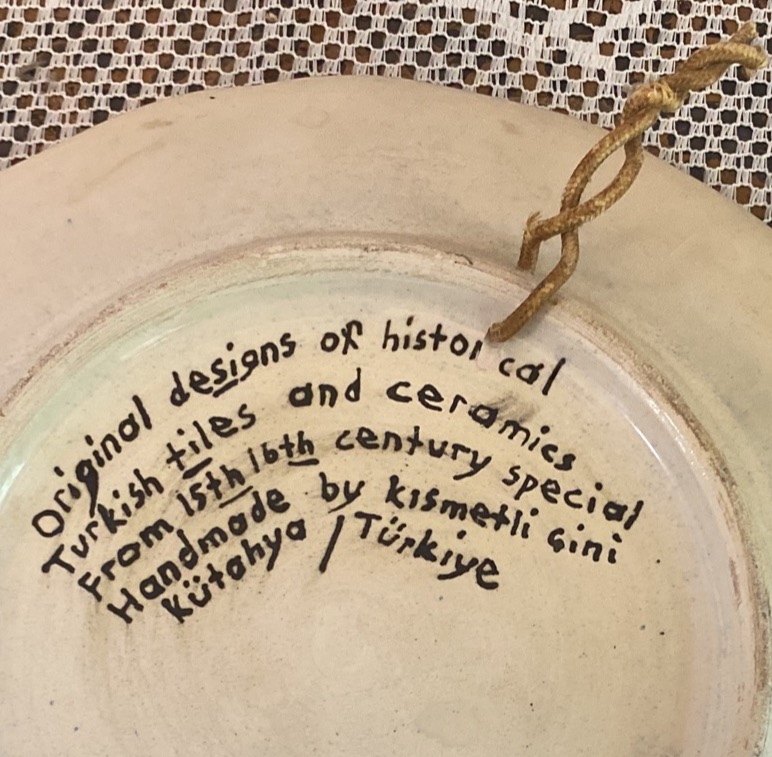 Original designs of historical
Turkish tiles and ceramics
From 15th 16th century special
Handmade by kısmetli çini
Kütahya / Türkiye